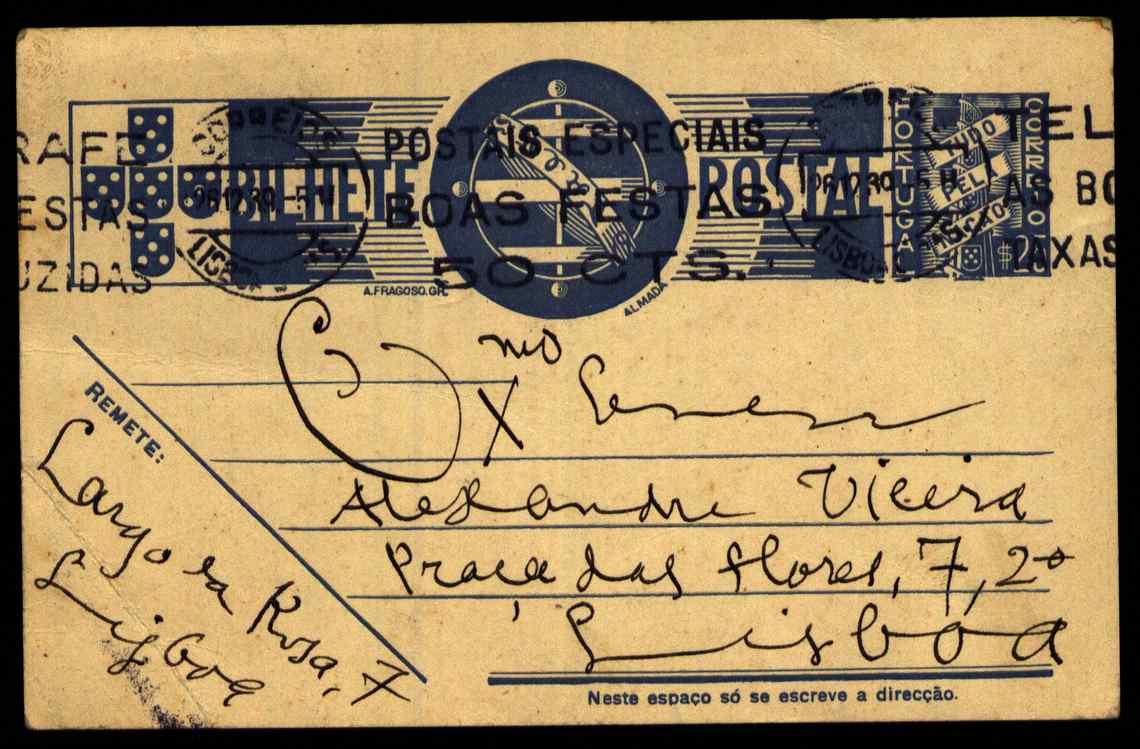 BILHETE POSTAL
PORTUGAL
CORREIO
TUDO
PELA
NAÇÃO
RAFE
ESTAS
UZIDAS
CORREIOS
26.12.39.-5 M
LISBOA
POSTAIS ESPECIAIS
BOAS FESTAS
50 CTS.
26.12.39.-5 M
LISBOA
TEL
AS BO
TAXAS
A.FRAGOSO.GR.
ALMADA
REMETE:
Largo da Rosa, 7
Lisboa
Exmo Senhor
Alexandre Vieira
Praça das Flores, 7, 2º
Lisboa
Neste espaço só se escreve a direcção.